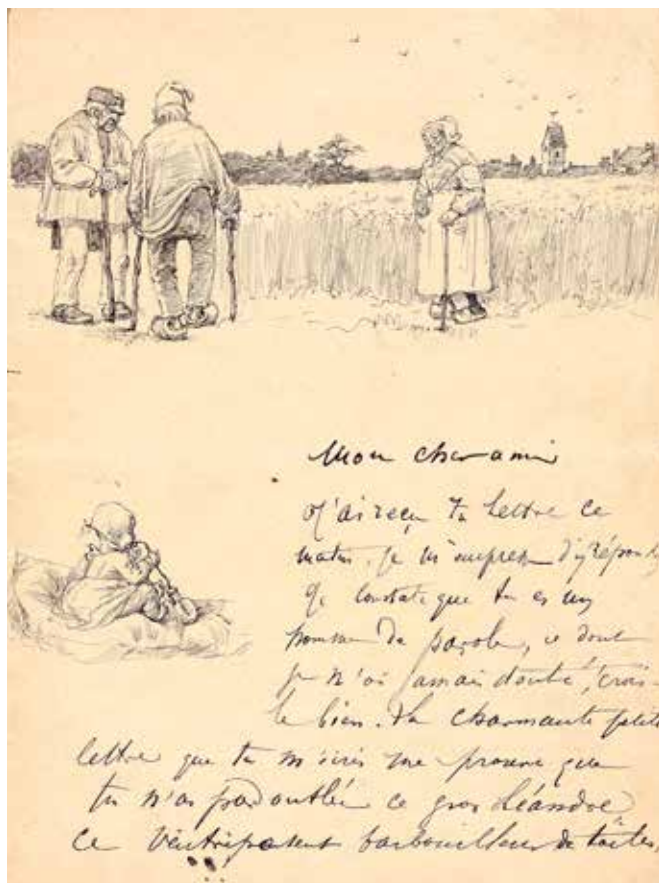 Mon cher ami
J'ai reçu ta lettre ce
matin, je m'empresse d'y répondre
Je constate que tu es un
homme de parole, ce dont
je n'ai jamais douté, crois
le bien. Ta charmante petite
lettre que tu m'écris me prouve que
tu n'as pas oublié ce gros Léandre
ce ventripotent barbouilleur de toiles,